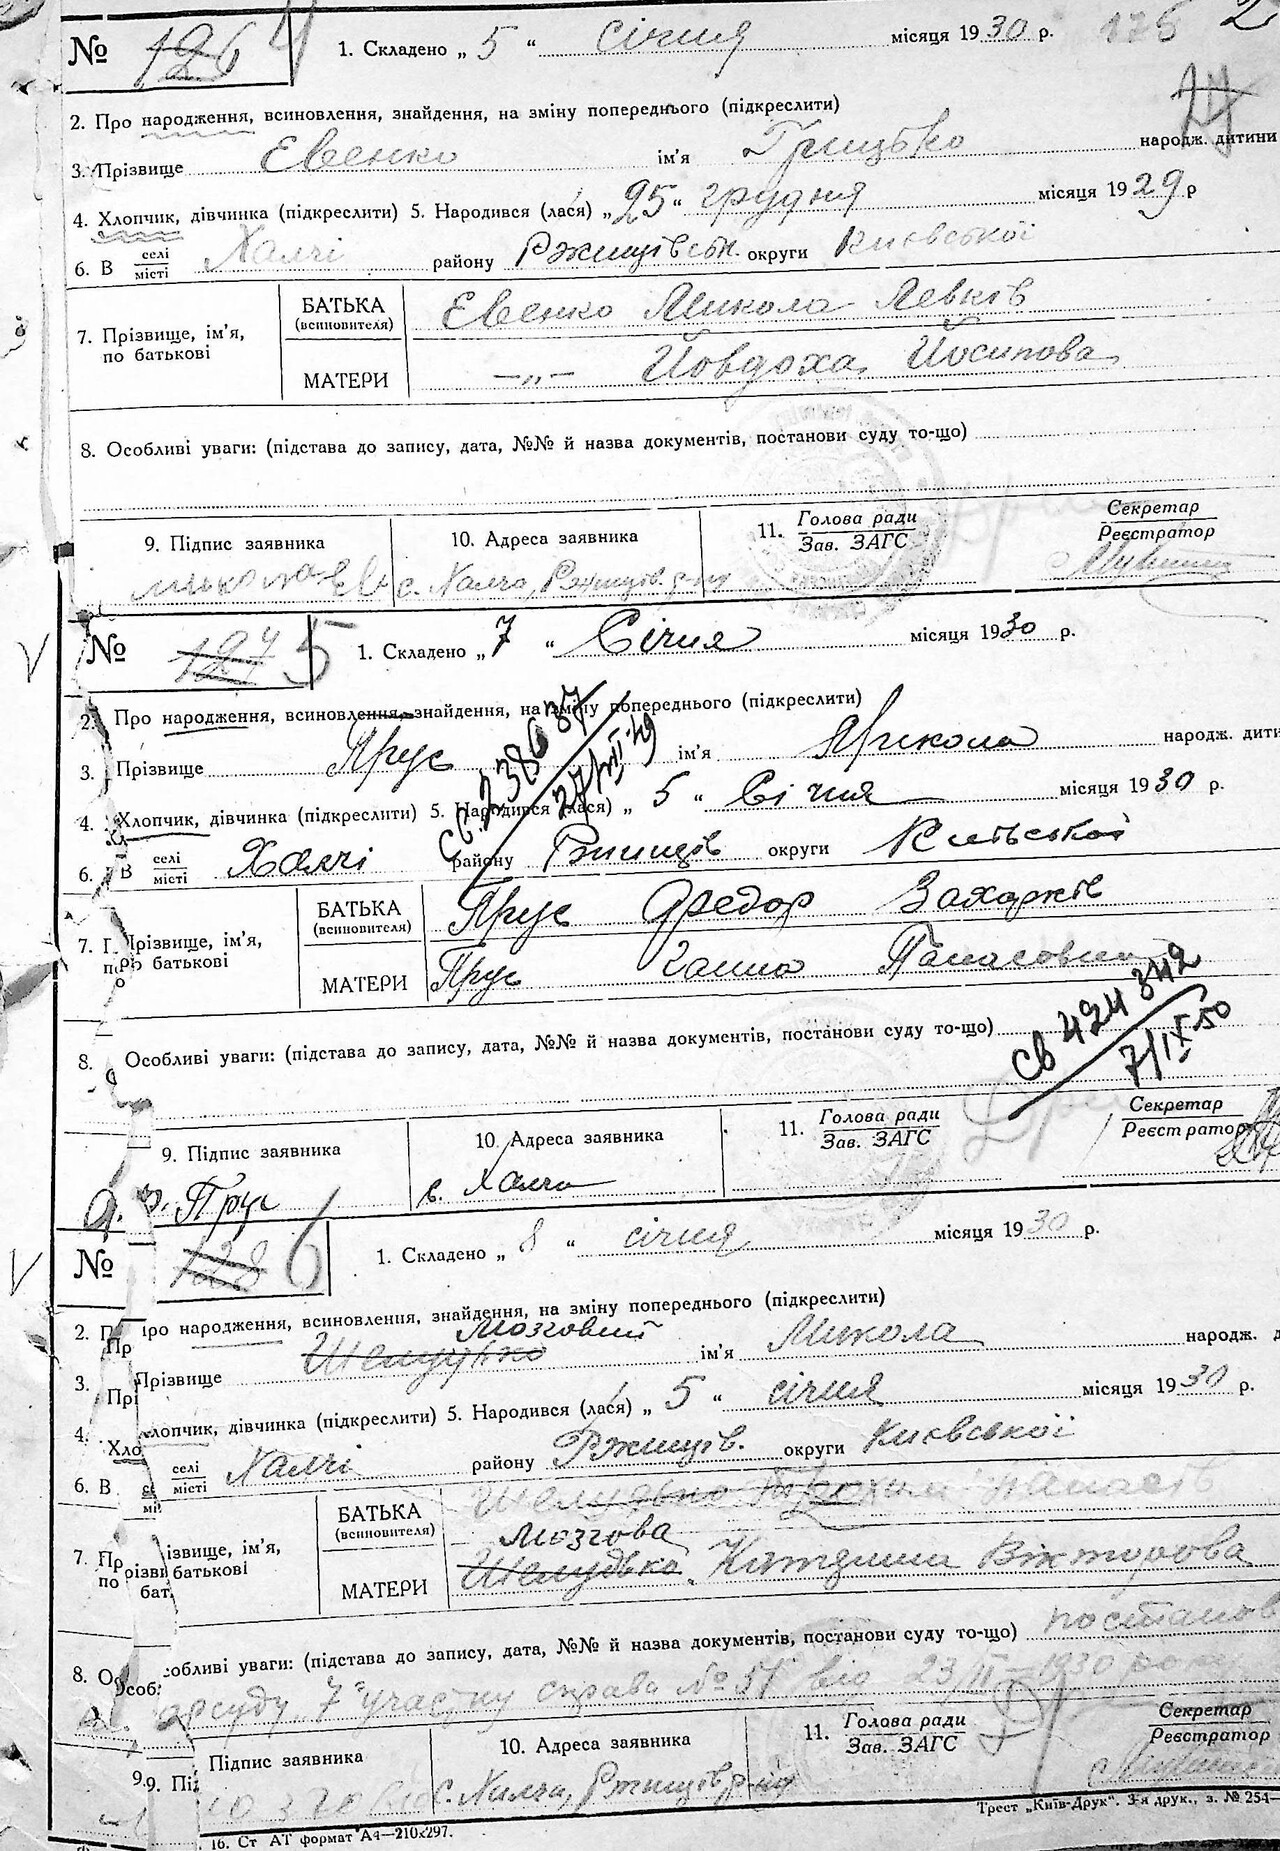 № 126 4 1. Складено „ 5 “ січня місяця 1930 р. 175
2. Про народження, всиновлення, знайдення, на зміну попереднього (підкреслити)
3. Прізвище Евенко ім'я Грицько народж. дитини
4. Хлопчик, дівчинка (підкреслити) 5. Народився (лася) „ 25 “ грудня місяця 1929 р
6. В селі місті Халчі району Ржищівськ. округи Київської
7. Прізвище, ім'я, по батькові
БАТЬКА (всиновителя) Евенко Микола Левків
МАТЕРИ —„— Йовдоха Йосипова
8. Особливі уваги: (підстава до запису, дата, №№ й назва документів, постанови суду то-що)
9. Підпис заявника 10. Адреса заявника 11. Голова ради Зав. ЗАГС Секретар Реєстратор
с. Халча, Ржищів. р-ну
№ 127 5 1. Складено „ 7 “ Січня місяця 1930 р.
2. Про народження, всиновлення, знайдення, на зміну попереднього (підкреслити)
св. 2386 37
27/VI 49
3. Прізвище Прус ім'я Микола народж. дити
4. Хлопчик, дівчинка (підкреслити) 5. Народився (лася) „ 5 “ Січня місяця 1930 р.
6. В селі місті Халчі району Ржищів округи Київської
7. Прізвище, ім'я, по батькові
БАТЬКА (всиновителя) Прус Федор Захарків
МАТЕРИ Прус Ганна Панасовна
8. Особливі уваги: (підстава до запису, дата, №№ й назва документів, постанови суду то-що)
св 424 342
7/IX 50
9. Підпис заявника 10. Адреса заявника 11. Голова ради Зав. ЗАГС Секретар Реєстратор
Прус с. Халча
№ 128 6 1. Складено „ 8 “ січня місяця 1930 р.
2. Про народження, всиновлення, знайдення, на зміну попереднього (підкреслити)
Мозговий
3. Прізвище Шелудько ім'я Микола народж. д
4. Хлопчик, дівчинка (підкреслити) 5. Народився (лася) „ 5 “ січня місяця 1930 р.
6. В селі місті Халчі району Ржищів. округи Київської
7. Прізвище, ім'я, по батькові
БАТЬКА (всиновителя) Шелудько Трохим Панасів
Мозгова
МАТЕРИ Шелудько Катерина Вікторова
8. Особливі уваги: (підстава до запису, дата, №№ й назва документів, постанови суду то-що) постанов
нарсуду 7 участку справа № 51 від 23/II 1930 року
9. Підпис заявника 10. Адреса заявника 11. Голова ради Зав. ЗАГС Секретар Реєстратор
с. Халча, Ржищів р-ну
16. Ст АТ формат А4—210х297.
Трест „Київ-Друк“. 3-я друк., з. № 254—